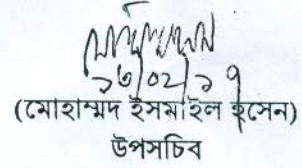 ১৩/০২/১৭
(মোহাম্মদ ইসমাইল হুসেন)
উপসচিব